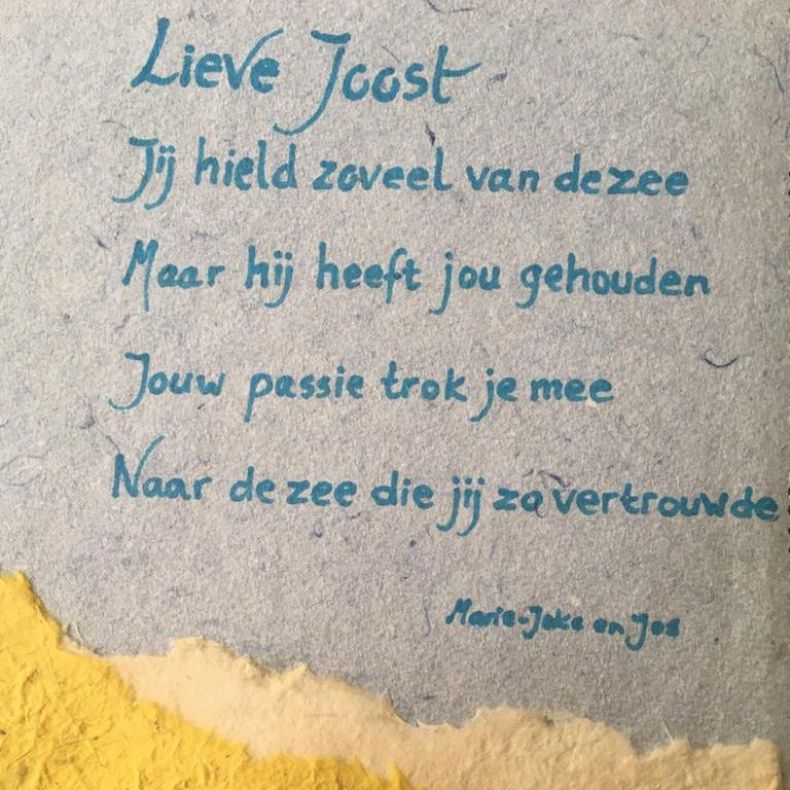 Lieve Joost
Jij hield zoveel van de zee
Maar hij heeft jou gehouden
Jouw passie trok je mee
Naar de zee die jij zo vertrouwde
Marie-Joke en Jos